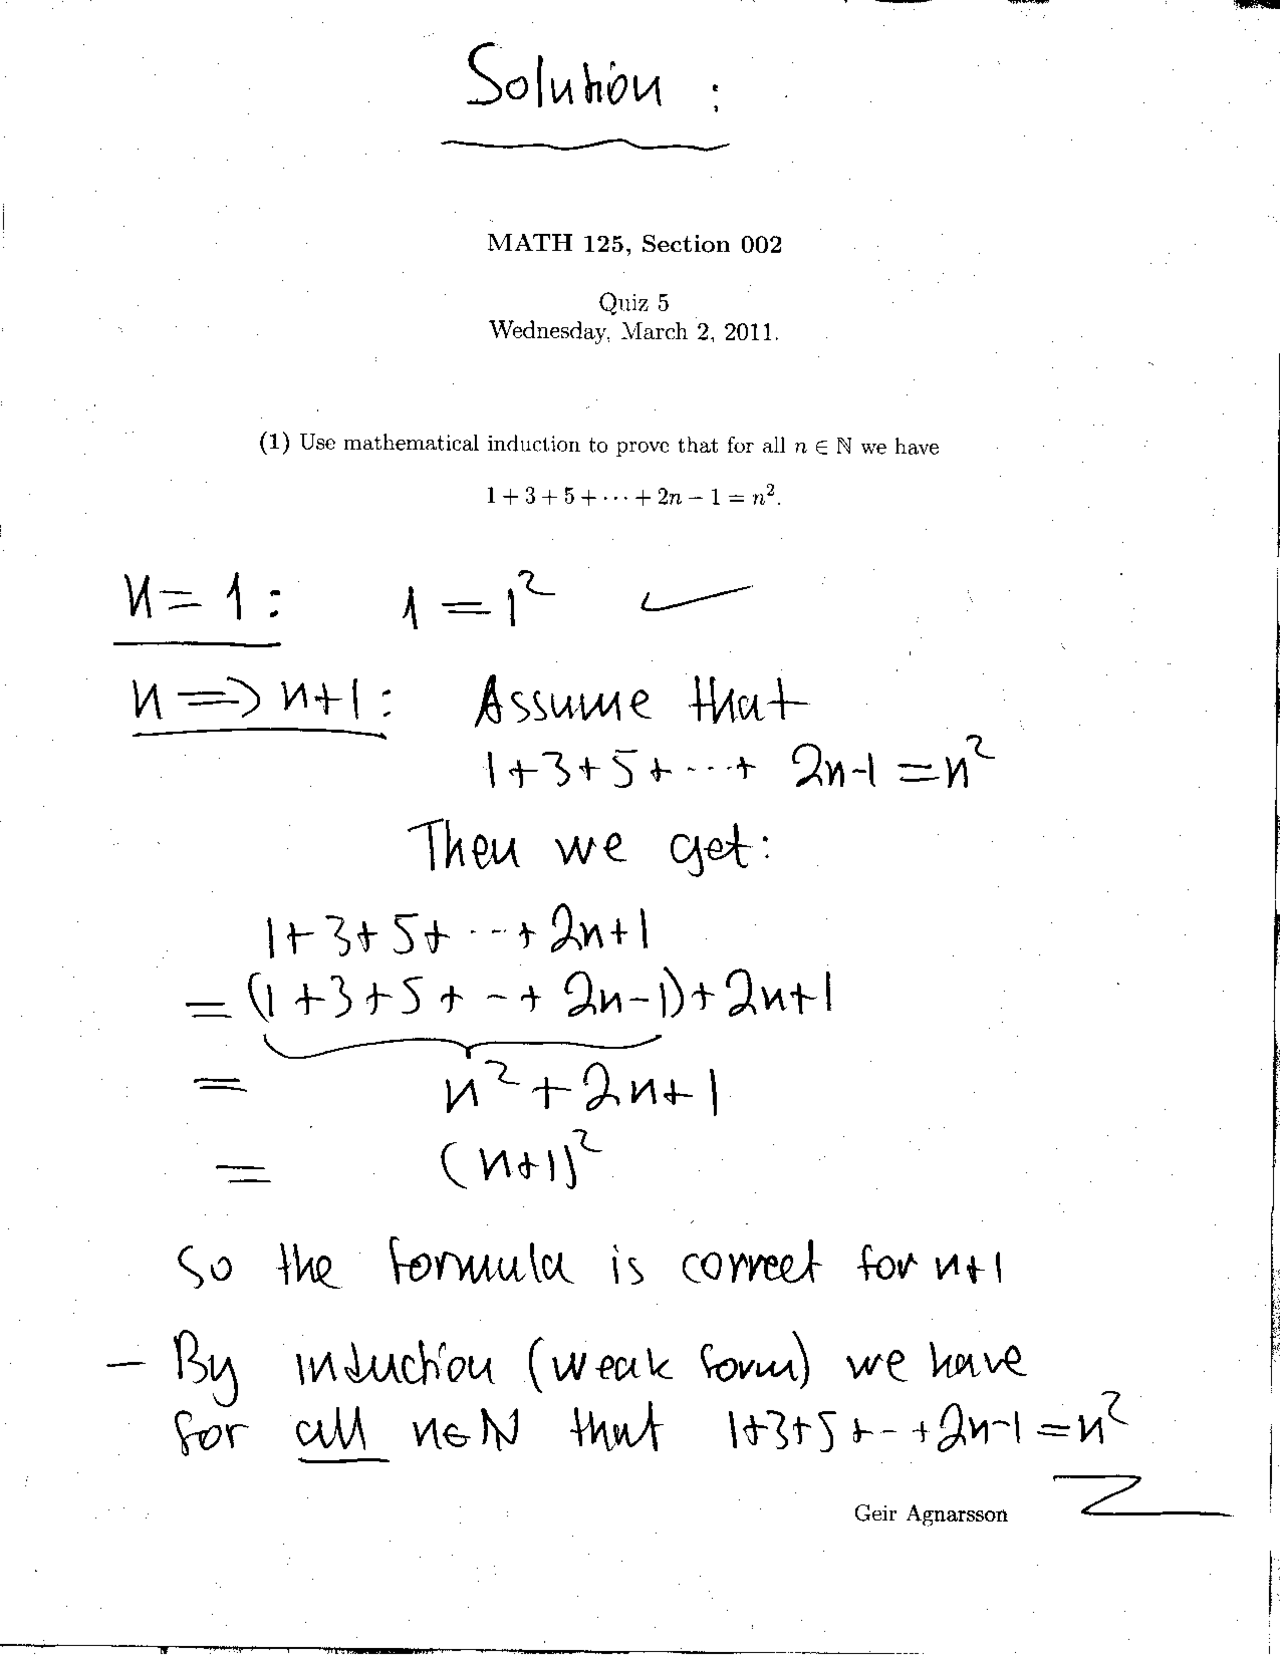 Solution :
MATH 125, Section 002
Quiz 5
Wednesday, March 2, 2011.
(1) Use mathematical induction to prove that for all n ∈ ℕ we have
1 + 3 + 5 + ··· + 2n − 1 = n².
n = 1 : 1 = 1² ✓
n ⇒ n+1 : Assume that
1+3+5+ ··· + 2n-1 = n²
Then we get:
1+3+5+ ··· + 2n+1
= (1+3+5+ -- + 2n-1) + 2n+1
= n² + 2n+1
= (n+1)²
So the formula is correct for n+1
- By induction (weak form) we have
for all n∈ℕ that 1+3+5+-- +2n-1 = n²
Geir Agnarsson